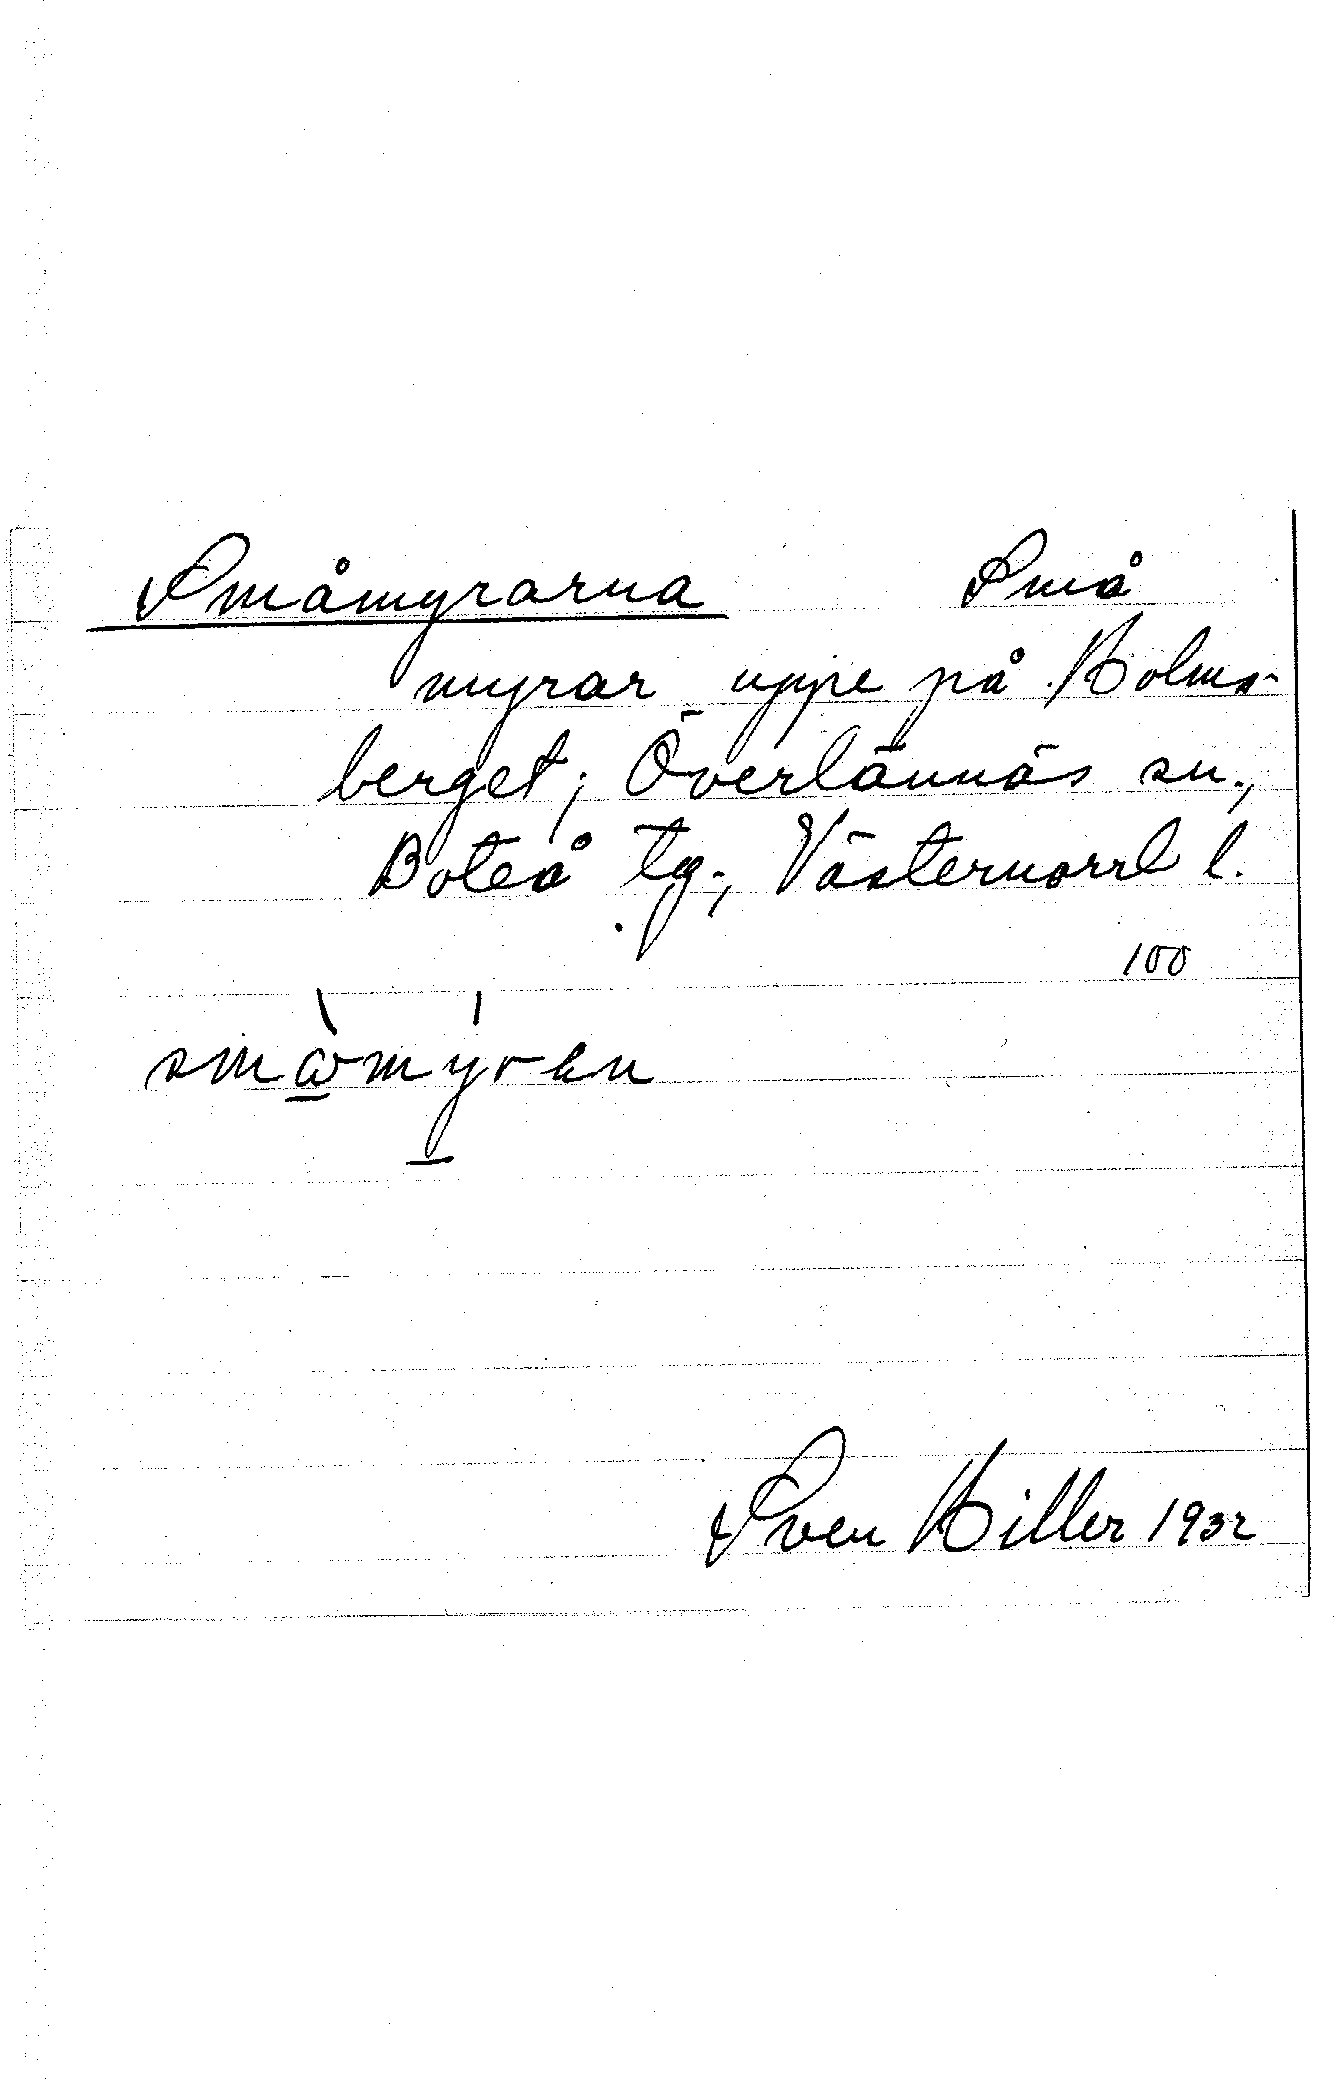 Småmyrarna Små
myrar uppe på Holms-
berget; Överlännäs sn.,
Boteå tg., Västernorrl l.
100
Sven Hiller 1932